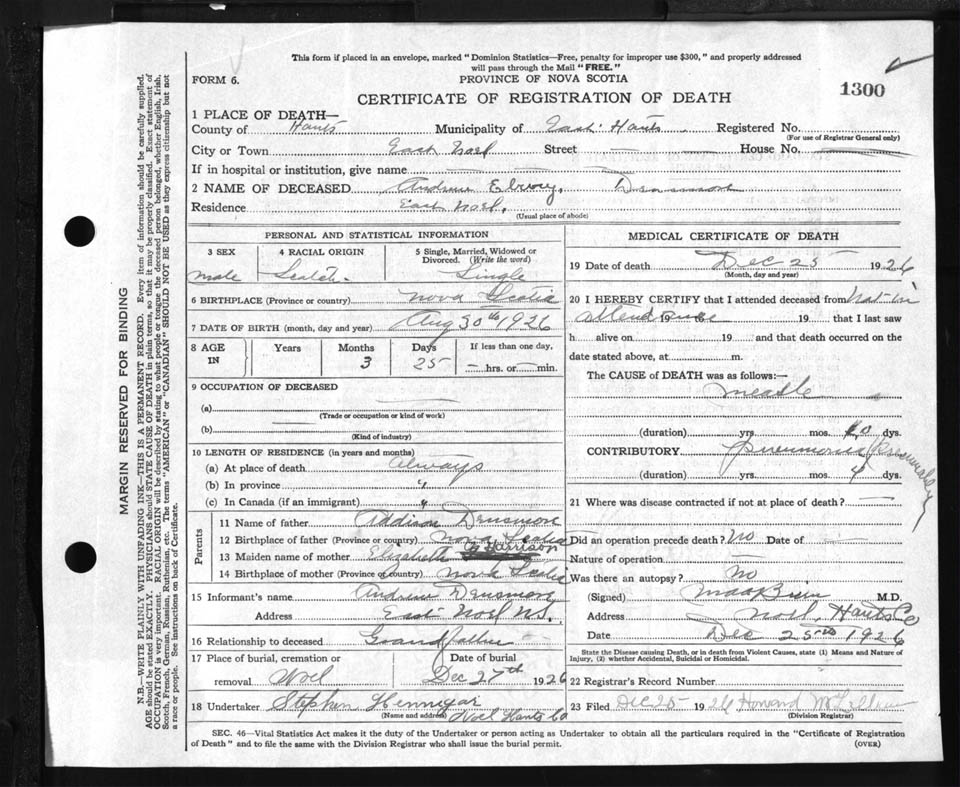 This form if placed in an envelope, marked "Dominion Statistics—Free, penalty for improper use $300," and properly addressed
will pass through the Mail "FREE."
FORM 6.
PROVINCE OF NOVA SCOTIA
1300
CERTIFICATE OF REGISTRATION OF DEATH
1 PLACE OF DEATH—
County of Hants Municipality of East Hants Registered No.
(For use of Registrar General only)
City or Town East Noel Street — House No. —
If in hospital or institution, give name —
2 NAME OF DECEASED Andrew Densmore
Residence East Noel.
(Usual place of abode)
PERSONAL AND STATISTICAL INFORMATION
3 SEX 4 RACIAL ORIGIN 5 Single, Married, Widowed or Divorced. (Write the word)
male Scotch Single
6 BIRTHPLACE (Province or country) Nova Scotia
7 DATE OF BIRTH (month, day and year) Aug 30th 1926
8 AGE IN Years Months Days If less than one day,
3 25 — hrs. or min.
9 OCCUPATION OF DECEASED
(a) —
(Trade or occupation or kind of work)
(b) —
(Kind of industry)
10 LENGTH OF RESIDENCE (in years and months)
(a) At place of death always
(b) In province "
(c) In Canada (if an immigrant) "
Parents
11 Name of father Addison Densmore
12 Birthplace of father (Province or country) Nova Scotia
13 Maiden name of mother Elizabeth Harrison
14 Birthplace of mother (Province or country) Nova Scotia
15 Informant's name Andrew Densmore
Address East Noel N.S.
16 Relationship to deceased Grandfather
17 Place of burial, cremation or removal Noel Date of burial Dec 27th 1926
18 Undertaker Stephen Hennigar
(Name and address) Noel Hants Co
MEDICAL CERTIFICATE OF DEATH
19 Date of death Dec 25 1926
(Month, day and year)
20 I HEREBY CERTIFY that I attended deceased from Not in
attendance 19 19 that I last saw
h alive on 19 and that death occurred on the
date stated above, at m.
The CAUSE of DEATH was as follows:—
measle
(duration) yrs. mos. 10 dys.
CONTRIBUTORY pneumonia presumably
(duration) yrs. mos. 4 dys.
21 Where was disease contracted if not at place of death? —
Did an operation precede death? No Date of —
Nature of operation —
Was there an autopsy? no
(Signed) M.D.
Address Noel, Hants Co
Date Dec 25 1926
State the Disease causing Death, or in death from Violent Causes, state (1) Means and Nature of
Injury, (2) whether Accidental, Suicidal or Homicidal.
22 Registrar's Record Number
23 Filed Dec 25 1926 Howard
(Division Registrar)
SEC. 46—Vital Statistics Act makes it the duty of the Undertaker or person acting as Undertaker to obtain all the particulars required in the "Certificate of Registration
of Death" and to file the same with the Division Registrar who shall issue the burial permit.
(OVER)
MARGIN RESERVED FOR BINDING
N.B.—WRITE PLAINLY WITH UNFADING INK—THIS IS A PERMANENT RECORD. Every item of information should be carefully supplied.
AGE should be stated EXACTLY. PHYSICIANS should STATE CAUSE OF DEATH in plain terms, so that it may be properly classified. Exact statement of
OCCUPATION is very important. RACIAL ORIGIN will be described by stating to what people or tongue the deceased person belonged, whether English, Irish,
Scotch, French, German, Russian, Ruthenian, etc. The terms "AMERICAN" or "CANADIAN" SHOULD NOT BE USED as they express citizenship but not
a race or people. See instructions on back of Certificate.